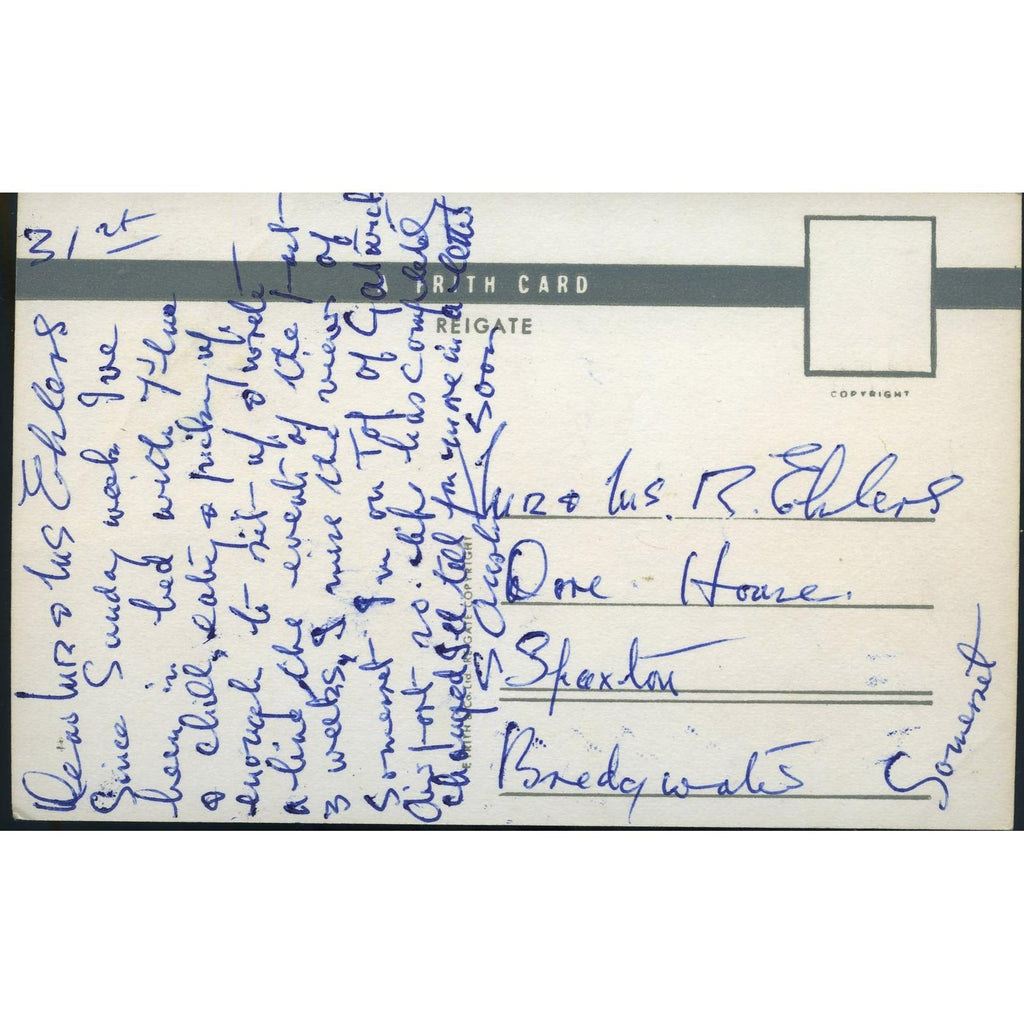 Dear Mr & Mrs Ehlers
Since Sunday week I've
been in bed with 'flue
& chill, eating & picking up
enough to sit up & write
a line the events of the past
3 weeks, I miss the views of
Somerset I'm on Top of Gatwick
Airport so life has completely
changed I'll tell you more in a letter
soon
A FRITH CARD
REIGATE
COPYRIGHT
Mr & Mrs. R. Ehlers
Dore House.
Spaxton
Bredgwater
Somerset